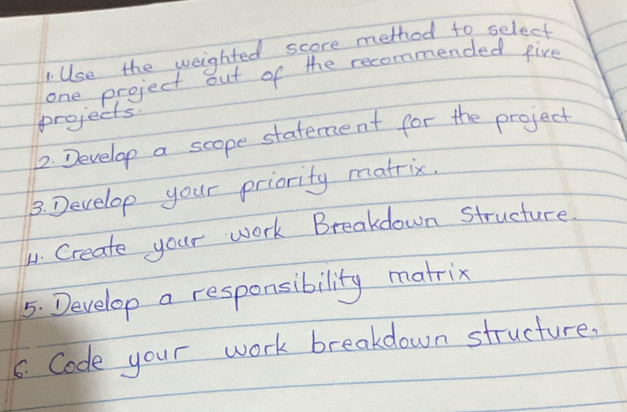 1. Use the weighted score method to select
one project out of the recommended five
projects.
2. Develop a scope statement for the project
3. Develop your priority matrix.
4. Create your work Breakdown Structure.
5. Develop a responsibility matrix
6. Code your work breakdown structure.